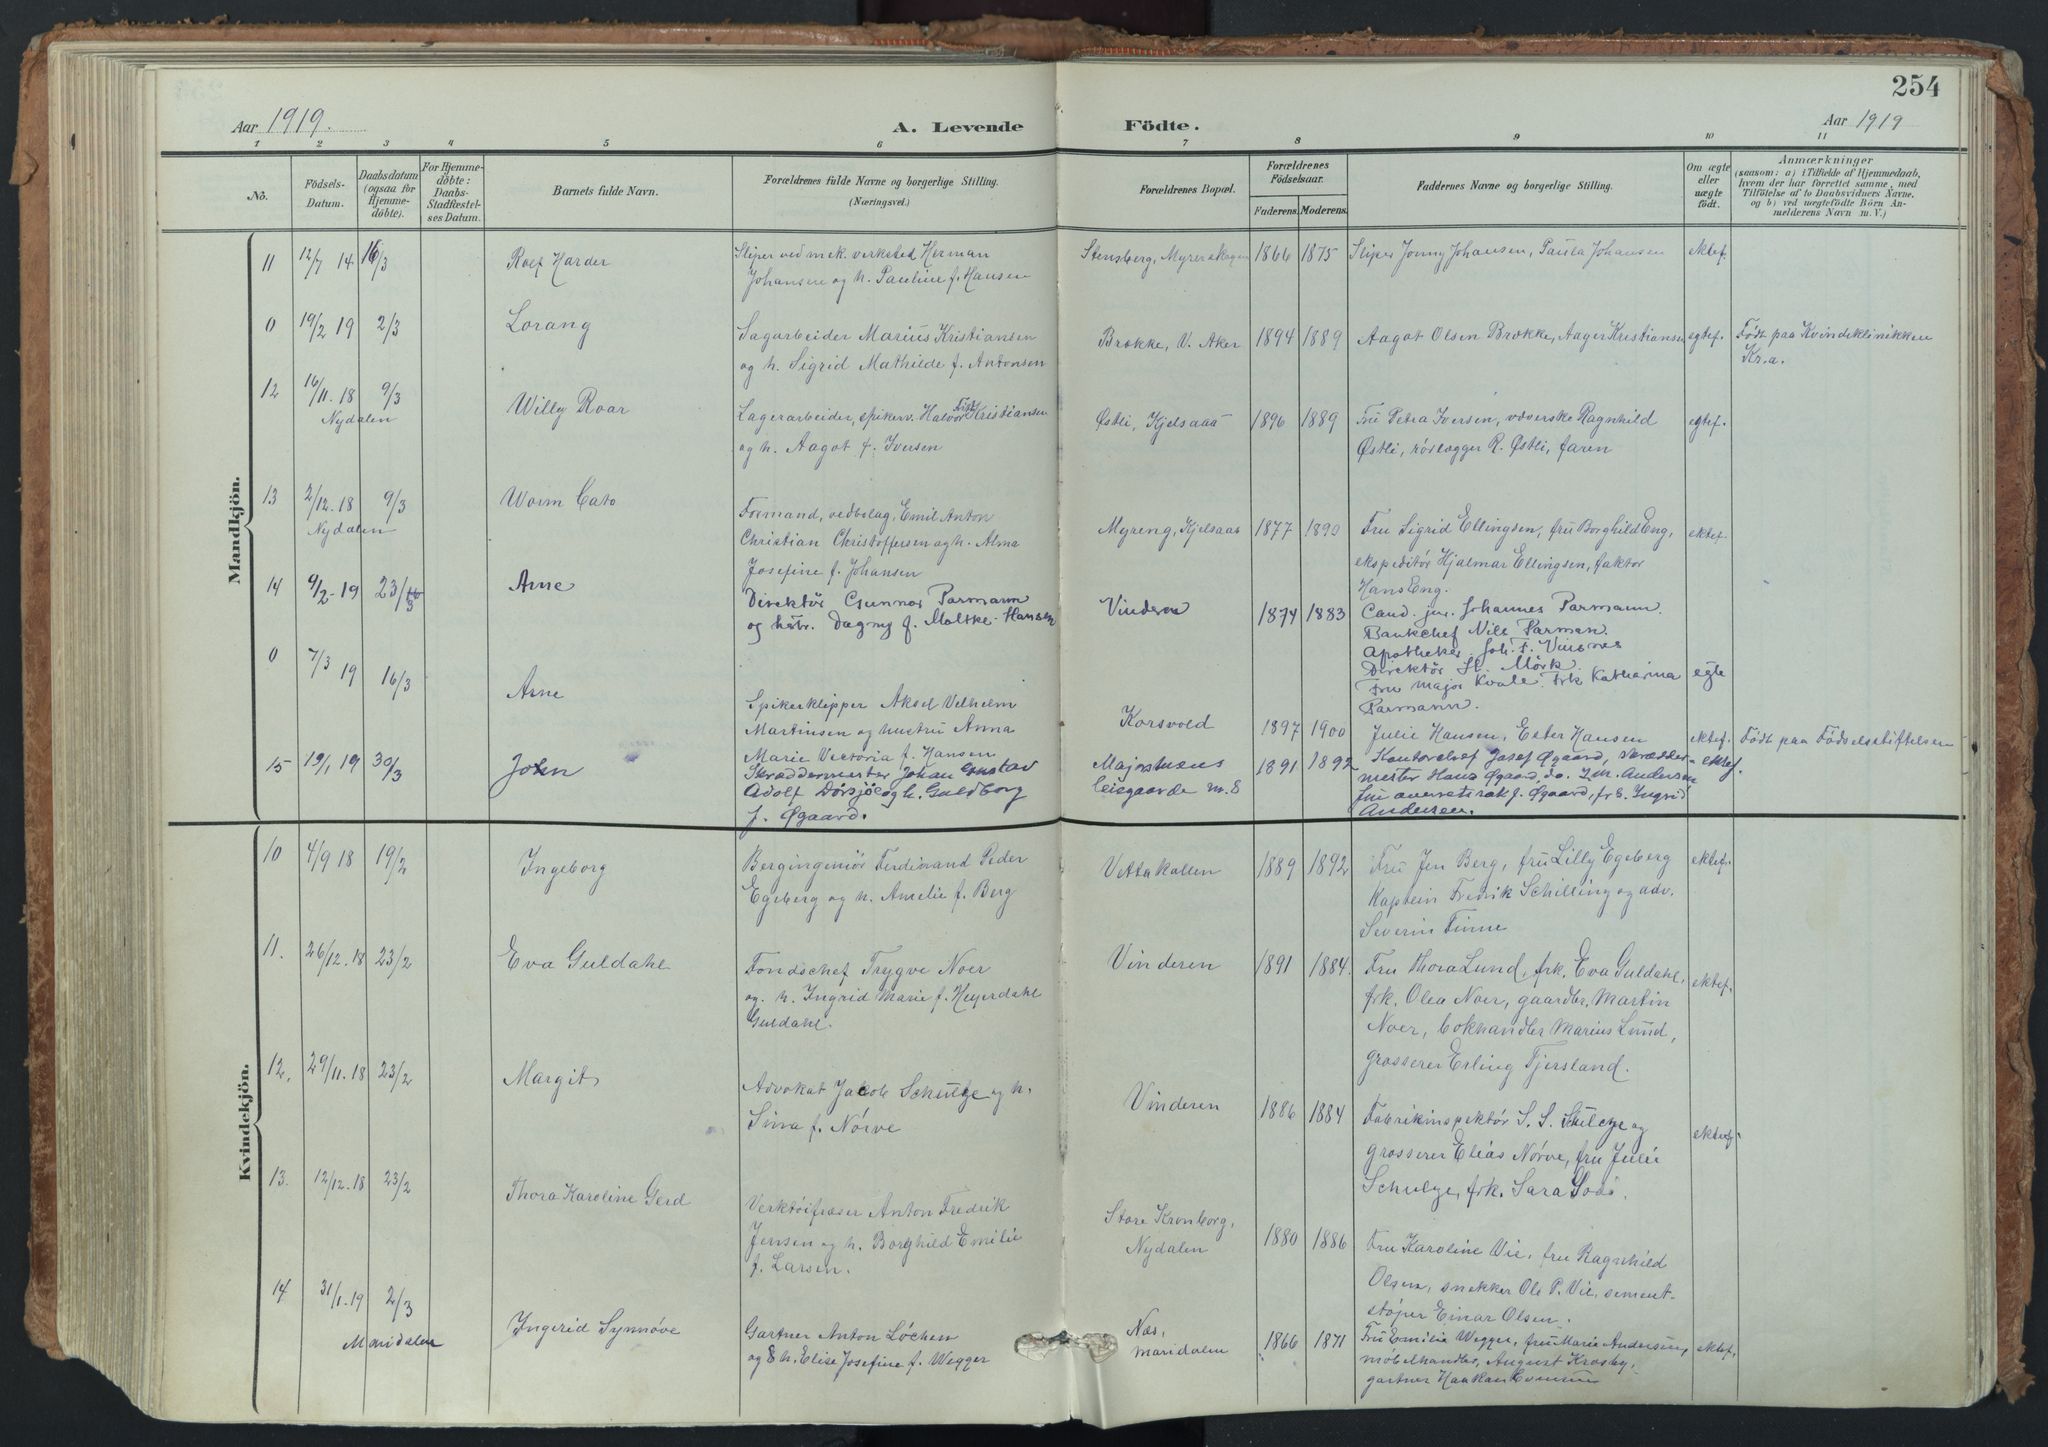 254
Aar 1919.
A. Levende
Födte.
Aar 1919
1 2 3 4 5 6 7 8 9 10 11
No.
Födsels-
Datum.
Daabsdatum
(ogsaa for
Hjemme-
döbte).
For Hjemme-
döbte:
Daabs-
Stadfæstel-
ses Datum.
Barnets fulde Navn.
Forældrenes fulde Navne og borgerlige Stilling.
(Næringsvei.)
Forældrenes Bopæl.
Forældrenes
Födselsaar.
Faderens. Moderens.
Faddernes Navne og borgerlige Stilling.
Om ægte
eller
uægte
födt.
Anmærkninger
(saasom: a) i Tilfælde af Hjemmedaab,
hvem der har forrettet samme, med
Tilföielse af to Daabsvidners Navne.
og b) ved uægtefödte Börn An-
melderens Navn m. V.)
Mandkjön.
11 12/7 14 16/3 Rolf Harder
Sliper ved mek. verksted Herman
Johansen og h. Pauline f. Hansen
Stensberg, Myrerskogen 1866 1875
Sliper Jonny Johansen, Paula Johansen
ektef.
0 19/2 19 2/3 Lorang
Sagarbeider Marius Kristiansen
og h. Sigrid Mathilde f. Antonsen
Brække, V. Aker 1894 1889
Aagot Olsen Brække, Aager Kristiansen
egtef.
Født paa Kvindeklinikken
Kr.a.
12 16/11.18 9/3 Willy Roar
Nydalen
Lagerarbeider, spikerv. Halvor Kristiansen
og h. Aagot f. Iversen
Østli, Kjelsaas 1896 1889
Fru Petra Iversen, væverske Ragnhild
Østli, rørlægger R. Østli, faren
egtef.
13 2/12.18 9/3 Worm Cato
Nydalen
Formand, vedbelag, Emil Anton
Christian Christoffersen og h. Alma
Josefine f. Johansen
Myreng, Kjelsaas 1877 1890
Fru Sigrid Ellingsen, fru Borghild Eng,
ekspeditør Hjalmar Ellingsen, faktor
Hans Eng.
ektef.
14 9/2-19 23/3 Arne
Direktør Gunnar Parmann
og hstr. Dagny f. Moltke-Hansen
Vinderen 1874 1883
Cand. jur. Johannes Parmann.
Bankchef Nils Parman.
Apotheker Joh. F. Vinsnes
Direktør St. Mörk.
Fru major Kvale. Frk Katharina
Parmann.
egte
0 7/3 19 16/3 Arne
Spikerklipper Aksel Vilhelm
Martinsen og hustru Anna
Marie Viktoria f. Hansen
Korsvold 1897 1900
Julie Hansen, Ester Hansen
ektef.
Født paa Fødselsstiftelsen
15 19/1 19 30/3 John
Skræddermester Johan Gustav
Adolf Dørsjö og h. Guldborg
f. Øgaard.
Majorstuens
leisgaarde nr. 8
1891 1892
Kontorchef Josef Øgaard, skrædder-
mester Hans Øgaard, do. I.M. Andersen
fru f. Øgaard, frk. Ingrid
Andersen.
ektef.
Kvindekjön.
10 4/9 18 19/2 Ingeborg
Bergingeniør Ferdinand Peder
Egeberg og h. Amelie f. Berg
Vettakollen 1889 1892
Fru Jen Berg, fru Lilly Egeberg
Kaptein Fredrik Schilling og adv.
Severin Finne
ektef.
11. 26/12.18 23/2 Eva Guldahl
Fondschef Trygve Noer
og. h. Ingrid Marie f. Heyerdahl
Guldahl.
Vinderen 1891 1884.
Fru Thora Lund, frk. Eva Guldahl,
frk. Olea Noer, gaardbr. Martin
Noer, bokhandler Marius Lund,
grosserer Erling Tjersland.
ektef.
12. 29/11.18 23/2 Margit
Advokat Jacob Schulze og h.
Sina f. Nörve
Vinderen 1886 1884
Fabrikinspektør S. S. Schulze og
grosserer Elias Nörve, fru Julie
Schulze, frk. Sara
ektef.
13. 12/12.18 23/2 Thora Karoline Gerd
Verktøifræser Anton Fredrik
Jensen og h. Borghild Emilie
f. Larsen.
Store Kronborg,
Nydalen
1880 1886
Fru Karoline Vie, fru Ragnhild
Olsen, snekker Ole P. Vie, sement-
støper Einar Olsen.
14 31/1.19 2/3 Ingerid Synnøve
Maridalen
Gartner Anton Löchen
og h. Elise Josefine f. Wegger
Næs,
Maridalen
1866 1871
Fru Emilie Wegger, fru Marie Andersen,
møbelhandler, August Krosby,
gartner Haakan
ektef.